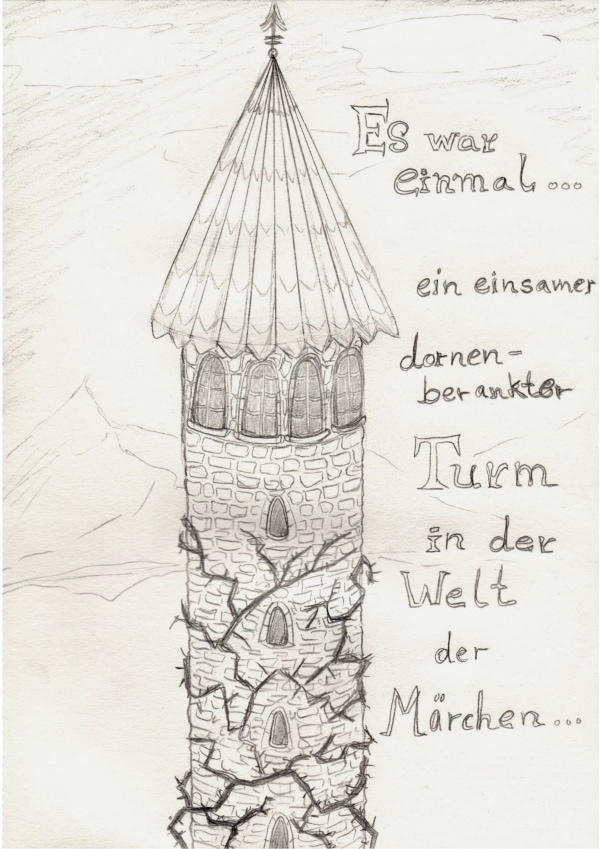 Es war
einmal...
ein einsamer
dornen-
berankter
Turm
in der
Welt
der
Märchen...